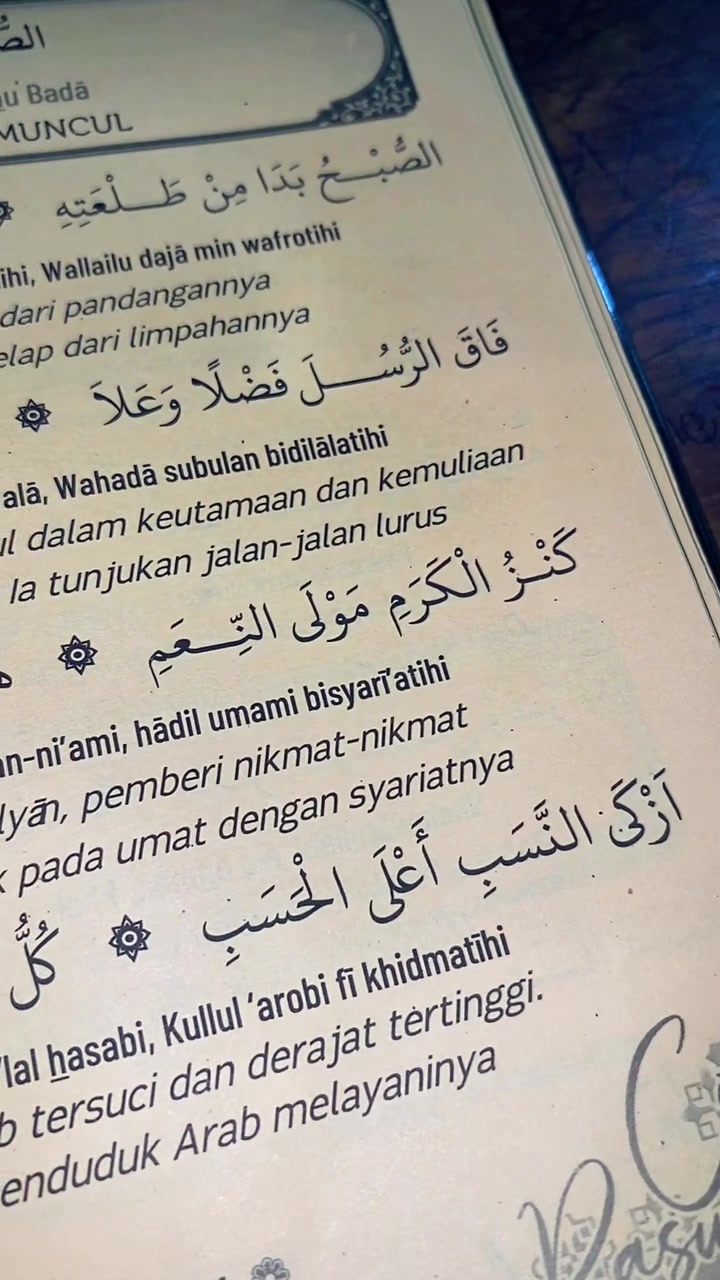 الصُّ
u Badā
MUNCUL
الصُّبْحُ بَدَا مِنْ طَلْعَتِهِ
ihi, Wallailu dajā min wafrotihi
dari pandangannya
elap dari limpahannya
فَاقَ الرُّسُلَ فَضْلًا وَعَلَا
alā, Wahadā subulan bidilālatihi
ul dalam keutamaan dan kemuliaan
Ia tunjukan jalan-jalan lurus
كَنْزُ الْكَرَمِ مَوْلَى النِّعَمِ
an-ni'ami, hādil umami bisyarī'atihi
lyān, pemberi nikmat-nikmat
k pada umat dengan syariatnya
اَزْكَى النَّسَبِ أَعْلَى الْحَسَبِ كُلُّ
'lal hasabi, Kullul 'arobi fī khidmatīhi
b tersuci dan derajat tertinggi.
enduduk Arab melayaninya